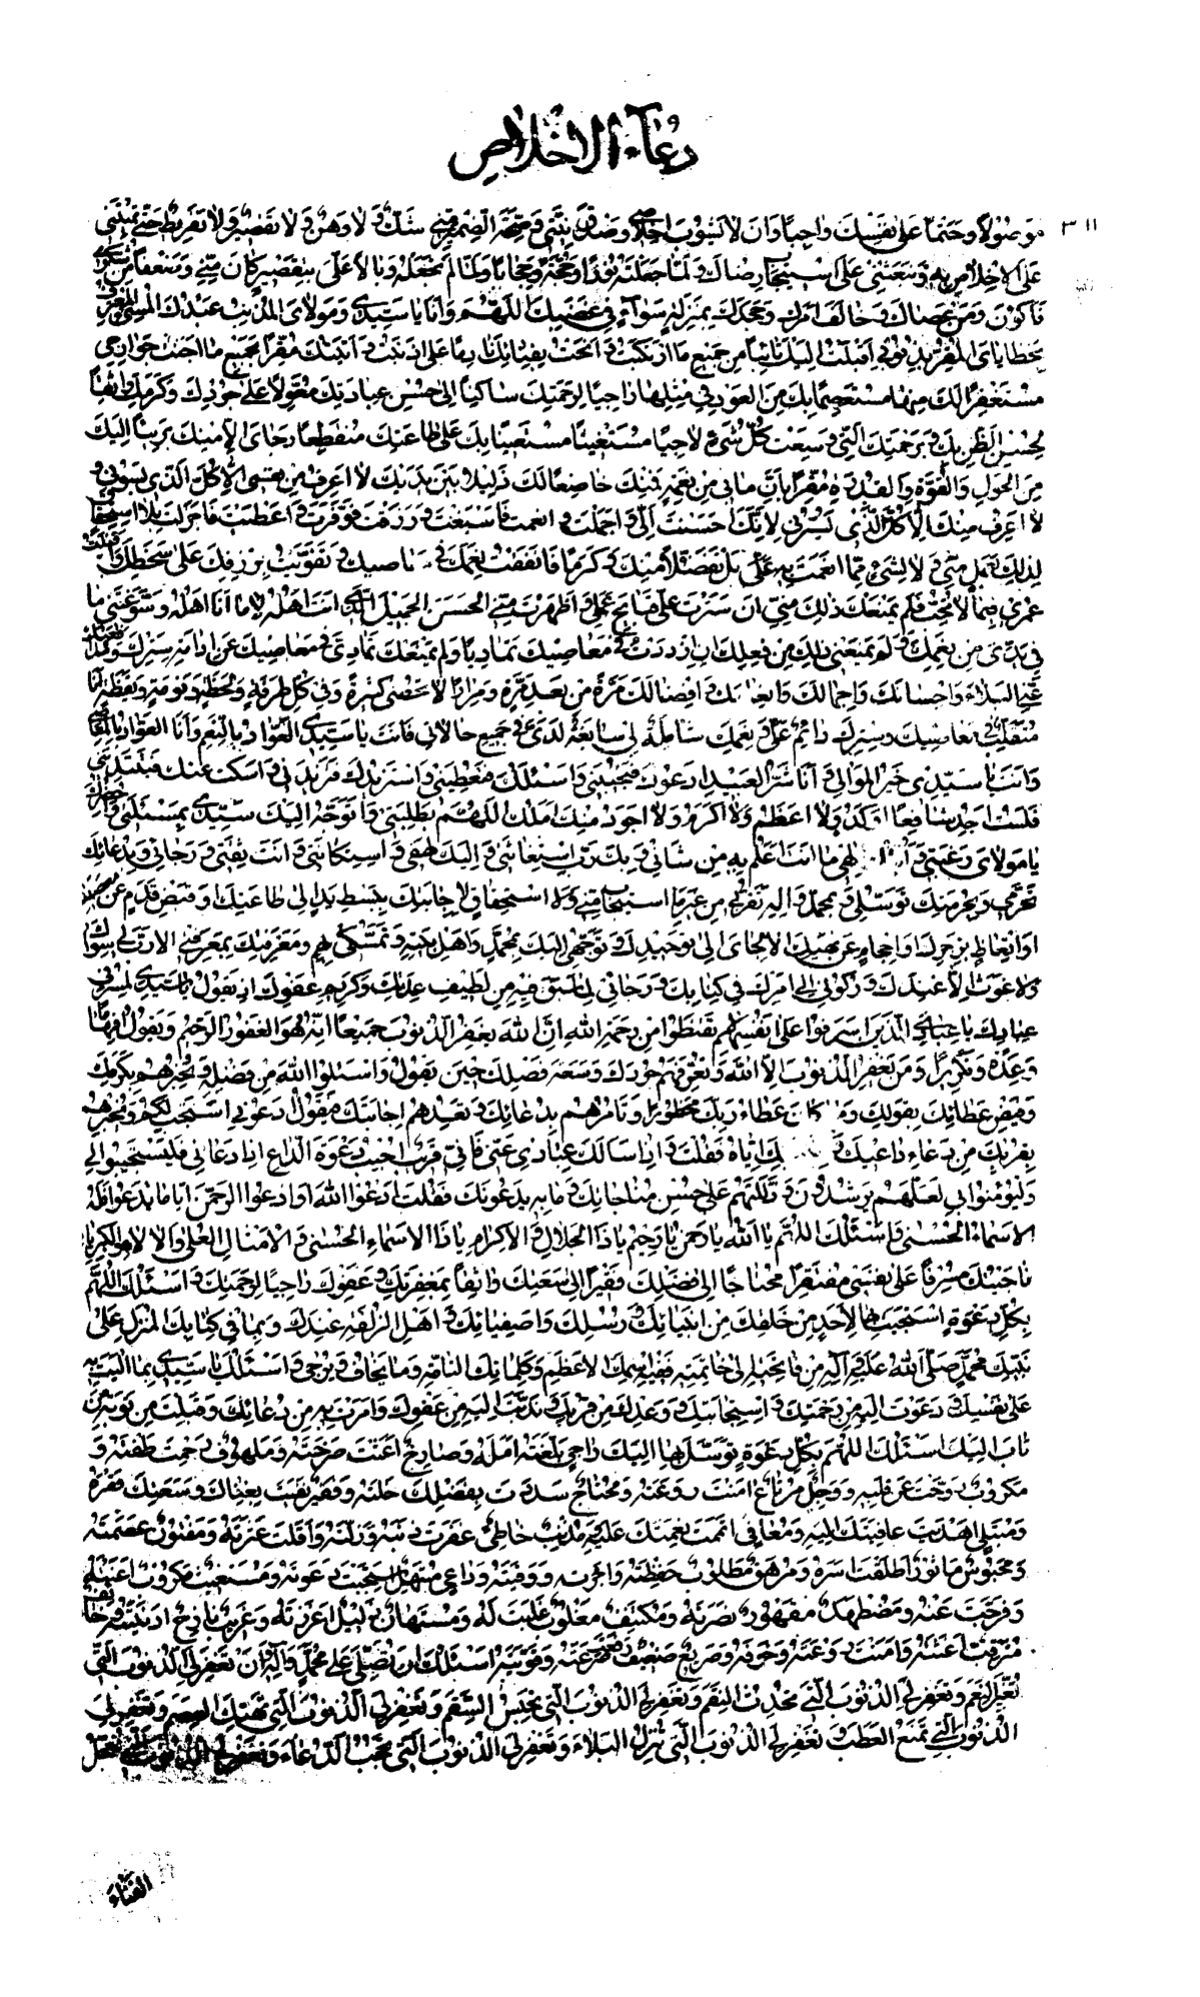 دعاء الاخلاص
٣١١
موصولاً وحتما على نفسك واجباً وان لا تشوب اخلاصي وصادق نيتي وصحة الضمير مني شك ولا وهن ولا نقص ولا تفريط حتى
على الاخلاص به وتبعثني على استيجاب رضاك
فاكون ومن عصاك وخالف امرك وجحدك بمنزلة سواء في غضبك اللهم وانا يا سيدي ومولاي المذنب عبدك المسيء المعترف
بخطاياي المقر بذنوبي اقبلت اليك تائباً من جميع ما ارتكبت مقراً بجميع ما اجنت جوارحي
مستغفراً لك منها مستعصماً بك من العود في مثلها راجياً لرحمتك ساكناً الى حسن عبادتك معولاً على جودك وكرمك واثقاً
بحسن الظن بك وبرحمتك التي وسعت كل شيء لاجياً مستغيثاً مستعيناً بك على طاعتك منقطعاً رجاي الا منك بريئاً اليك
من الحول والقوة والقدرة مقراً بان ما بي من نعمة فمنك خاضعاً لك ذليلاً بين يديك لا اعرف من نفسي الا كل الذي يسوئني و
لا اعرف منك الا كل الذي يسرني لانك احسنت الي واجملت وانعمت فاسبغت ورزقت فوفرت واعطيت فاجزلت بلا استحقاق
لذلك بعمل مني ولا لشيء مما انعمت به علي بل تفضلاً منك وكرماً فانفقت نعمك في معاصيك وتقويت برزقك على سخطك وافنيت
عمري فيما لا تحب فلم يمنعك ذلك مني ان سترت علي قبايح عملي واظهرت مني الحسن الجميل
في يدي من نعمك ولم يمنعني ذلك من فعلك ان ازددت في معاصيك تمادياً ولم يمنعك تمادي في معاصيك عن ادامة سترك
عني البلاء واحسانك واجمالك وانعامك وافضالك مرة من بعد مرة ومراراً لا تحصى كثرة وفي كل طرفة ولحظة ونومة ويقظة
متقلب في معاصيك وسترك دائم علي ونعمك شاملة لي سابغة لدي في جميع حالاتي فانت يا سيدي العواد بالنعم وانا العواد بالمعاصي
وانت يا سيدي خير الموالي وانا شر العبيد ادعوك فتجيبني واسئلك فتعطيني واستزيدك فتزيدني واسكت عنك فتبتديني
فلست اجد شافعاً اوكد ولا اعظم ولا اكرم ولا اجود منك
يا مولاي رغبتي الهي ما انت اعلم به من شاني وبك رب استغاثتي واليك لهفي واستكانتي وانت ثقتي ورجائي وبدعائك
تحرمي وبحرمتك توسلي وبمحمد واله تقربي من غير ما استيجاب مني ولا استحقاق لاجابتك ببسط يد الى طاعتك او قبض قدم عن معصيتك
او اتعاظ بزجرك او احجام عن نهيك الا لجاي الى توحيدك وتوجهي اليك بمحمد واهل بيته وتمسكي بهم ومعرفتك بمعرفتي الا رب لي سواك
ولا غوث الا عندك وركوني الى امرك في كتابك ورجائي لما سبق فيه من لطيف عداتك وكريم عفوك اذ تقول يا سيدي لمسرفي
عبادك يا عبادي الذين اسرفوا على انفسهم لا تقنطوا من رحمة الله ان الله يغفر الذنوب جميعاً انه هو الغفور الرحيم وتقول
وعدة وتكريراً ومن يغفر الذنوب الا الله وتعرفهم جودك وسعة فضلك حين تقول واسئلوا الله من فضله وتخبرهم بكرمك
وفيض عطائك بقولك وما كان عطاء ربك محظوراً وتامرهم بدعائك وتعدهم اجابتك فتقول ادعوني استجب لكم وتخبرهم
بقربك من دعاء داعيك اياه فقلت واذا سالك عبادي عني فاني قريب اجيب دعوة الداع اذا دعاني فليستجيبوا لي
وليؤمنوا بي لعلهم يرشدون ودللتهم على حسن مناجاتك وما به يدعونك فقلت ادعوا الله او ادعوا الرحمن اياً ما تدعوا فله
الاسماء الحسنى فاسئلك اللهم يا الله يا رحمن يا رحيم يا ذا الجلال والاكرام يا ذا الاسماء الحسنى والامثال العلى والالاء والكبرياء
ناجيتك مسرفاً على نفسي مفتقراً محتاجاً الى فضلك فقيراً الى سعتك واثقاً بمغفرتك وعفوك راجياً لرحمتك واسئلك اللهم
بكل دعوة استجبت بها لاحد من خلقك من انبيائك ورسلك واصفيائك واهل الزلفة عندك وبما في كتابك المنزل على
نبيك محمد صلى الله عليه وآله من فاتحته الى خاتمته ففيه اسمك الاعظم وكلماتك التامة وما يخاف ويرجى واسئلك يا سيدي بما اليت به
على نفسك ودعوت اليه من رحمتك واستجابتك ووعدك من قربك وندبت اليه من عفوك وامرت به من دعائك وقبلت من توبة من
تاب اليك اسئلك اللهم بكل دعوة توسل بها اليك راجي بلغته امله وصارخ اغثت صرخته وملهوف رحمت لهفته و
مكروب فرجت عن قلبه ووجل مرتاع امنت روعته ومحتاج سددت بفضلك خلته وفقير نفيت بغناك وسعتك فقره
ومبتلى اهديت عافيتك اليه ومعافى اتممت نعمتك عليه ومذنب خاطئ غفرت ذنبه وزلته واقلت عثرته ومفتون عصمته
ومحبوس ماسور اطلقت اسره ومرهق مطلوب حفظته واجرته ووقيته وداعي مبتهل استجبت دعوته ومستغيث مكروب اغثته
وفرجت عنه ومضطهد مقهور نصرته ومكتنف مغلوب غلبت له ومستهان ذليل اعززته وغريب نازح ادنيته
مترقب اغثته وامنت روعته وخوفه وصريع ضعيف نعشته وقويته اسئلك ان تصلي على محمد واله وان تغفر لي الذنوب التي
تغير النعم وتغفر لي الذنوب التي تحدث النقم وتغفر لي الذنوب التي تحبس القسم وتغفر لي الذنوب التي تهتك العصم وتغفر لي
الذنوب التي تمنع العطاء وتغفر لي الذنوب التي تنزل البلاء وتغفر لي الذنوب التي تحجب الدعاء وتغفر لي الذنوب التي تعجل
الفناء